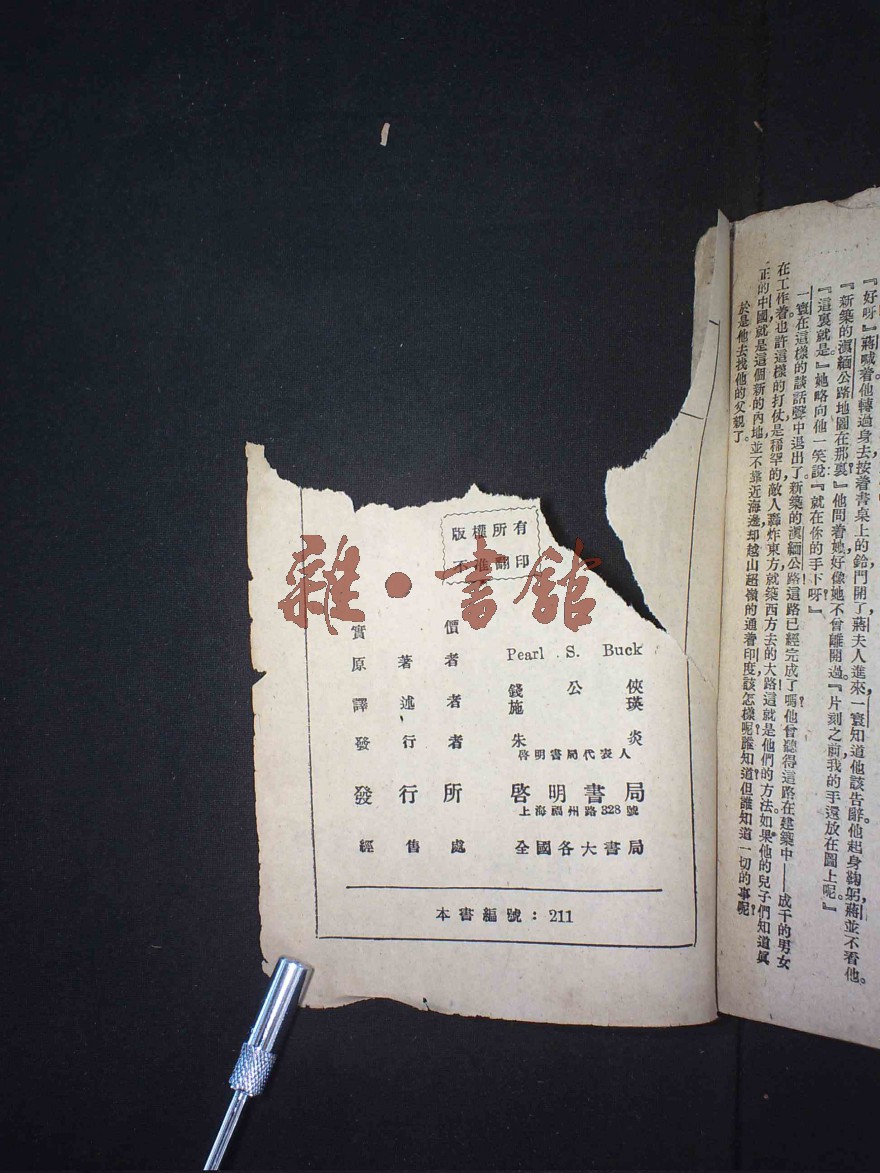 版權所有
不准翻印
雜·書館
實價
原著者 Pearl S. Buck
譯述者 錢公俠 施瑛
發行者 朱炎
啓明書局代表人
發行所 啓明書局
上海福州路328號
經售處 全國各大書局
本書編號：211
『好呀』蔣喊着他轉過身去按着書桌上的鈴門開了蔣夫人進來一寰知道他該告辭他起身鞠躬，蔣並不看他。
『新築的滇緬公路地圖在那裏？』他問着她好像她不曾離開過。『片刻之前，我的手還放在圖上呢。』
『這裏就是。』她略向他一笑說『就在你的手下呀！』
一寰在這樣的談話聲中退出了。新築的滇緬公路！這路已經完成了嗎？他曾聽得這路在建築中——成千的男女
在工作着。也許這樣的打仗是稀罕的，敵人轟炸東方，就築西方去的大路，這就是他們的方法。如果他的兒子們知道眞
正的中國，就是這個新的內地，並不靠近海邊，却越山超嶺的通着印度，該怎樣呢？誰知道？但誰知道一切的事呢？
於是他去找他的父親了。